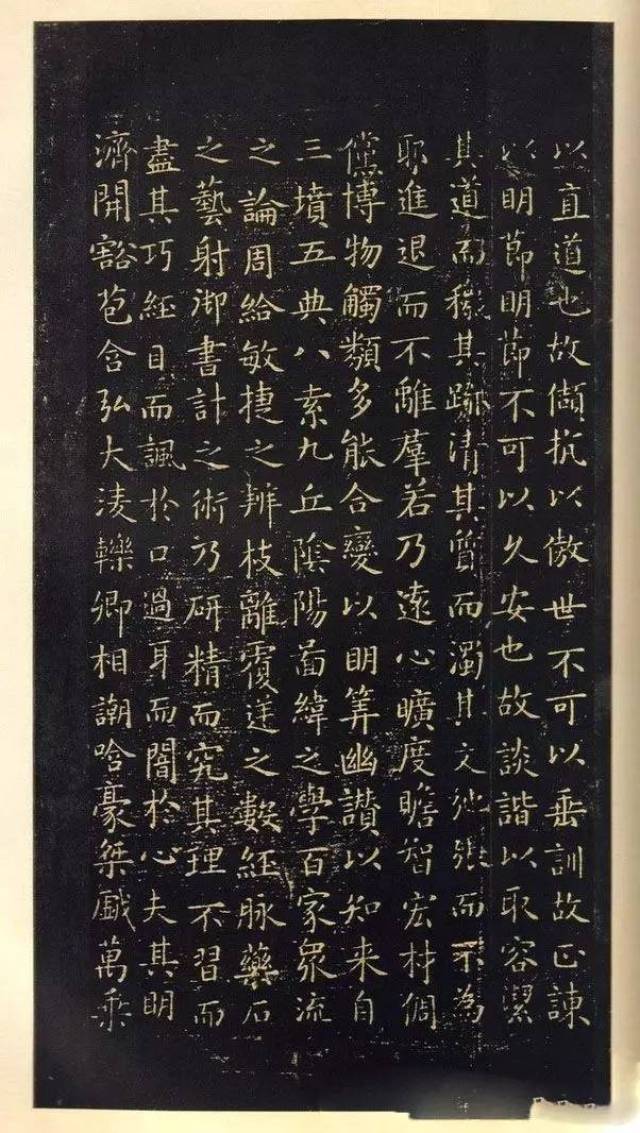 以直道也故抗以傲世不可以垂訓故正諫
以明節明節不可以久安也故談諧以取容潔
其道而穢其跡清其質而濁其文弛張而不為
耶進退而不離羣若乃遠心曠度贍智宏材倜
儻博物觸類多能合變以明筭幽讚以知来自
三墳五典八索九丘陰陽圖緯之學百家衆流
之論周給敏捷之辨枝離覆逆之數經脉藥石
之藝射御書計之術乃研精而究其理不習而
盡其巧經目而諷於口過耳而闇於心夫其明
濟開豁苞含弘大凌轢卿相謿哈豪桀戲萬乘